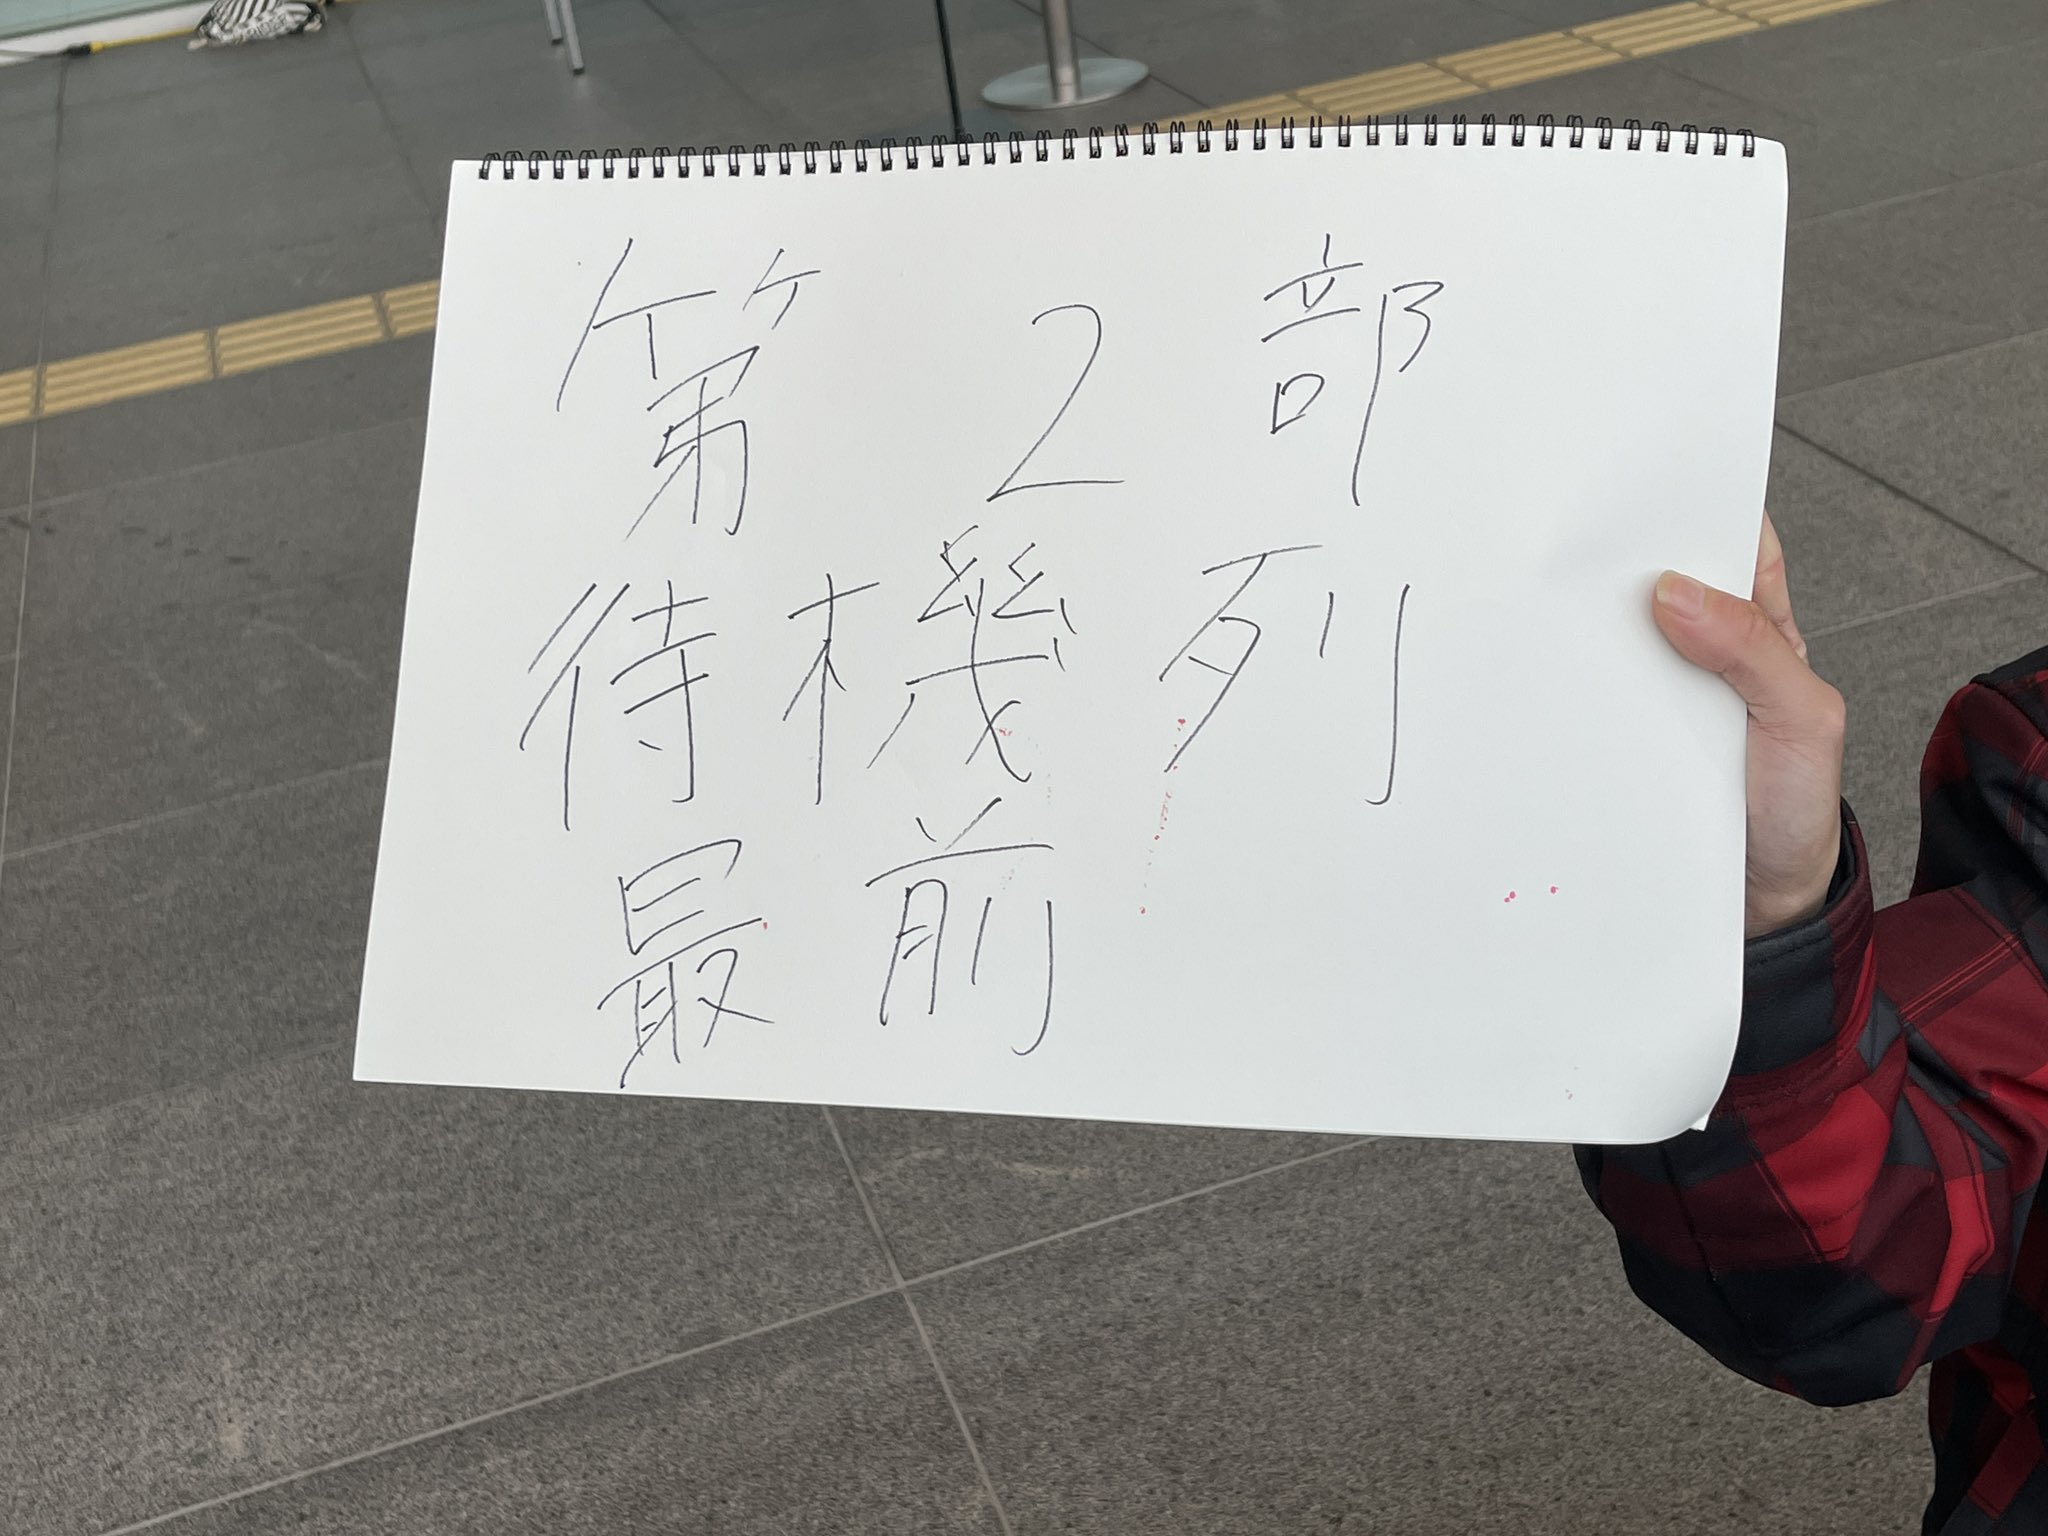 第2部
待機列
最前